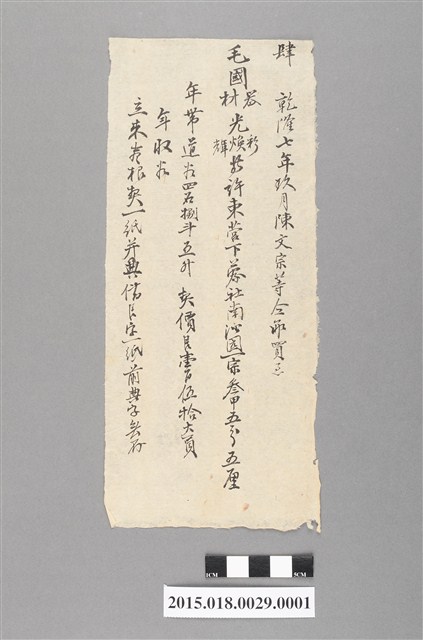 肆 乾隆七年玖月陳文宗等仝承買
毛國材 光煥 等許東營下蓉社南沙園一宗叁甲五分五厘
年帶道谷四石捌斗五升 契價艮壹百伍拾大員
年收谷
立来老根契一紙并典借艮字一紙前典字
1CM 5CM
2015.018.0029.0001